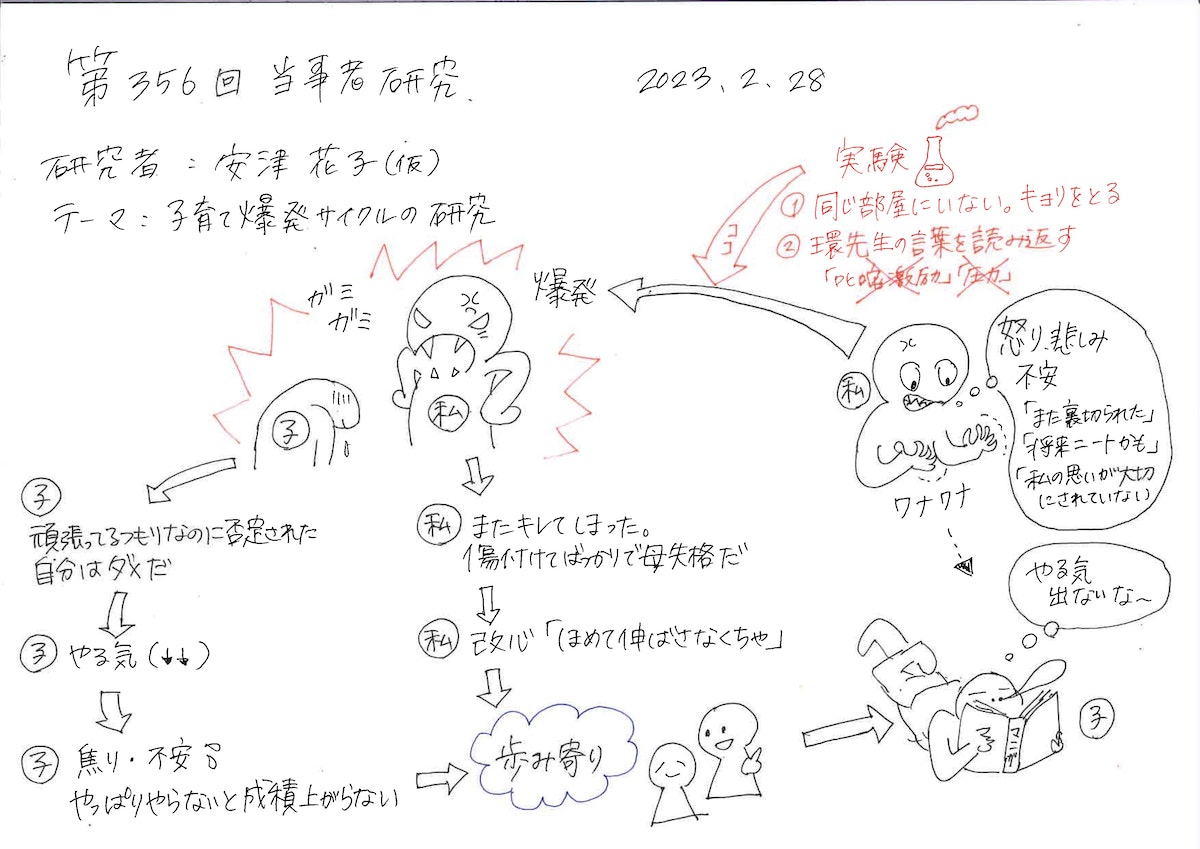 第356回 当事者研究
2023.2.28
研究者:安津 花子(仮)
テーマ:子育て爆発サイクルの研究
実験
① 同じ部屋にいない。キョリをとる
② 環先生の言葉を読み返す
「叱咤激励」「圧力」
ココ
爆発
ガミ
ガミ
子
私
私
怒り、悲しみ
不安
「また裏切られた」
「将来ニートかも」
「私の思いが大切
にされていない」
ワナワナ
子
頑張ってるつもりなのに否定された
自分はダメだ
子 やる気(↓↓)
子 焦り・不安
やっぱりやらないと成績上がらない
私 またキレてしまった。
傷付けてばっかりで母失格だ
私 改心「ほめて伸ばさなくちゃ」
歩み寄り
やる気
出ないな〜
マンガ
子